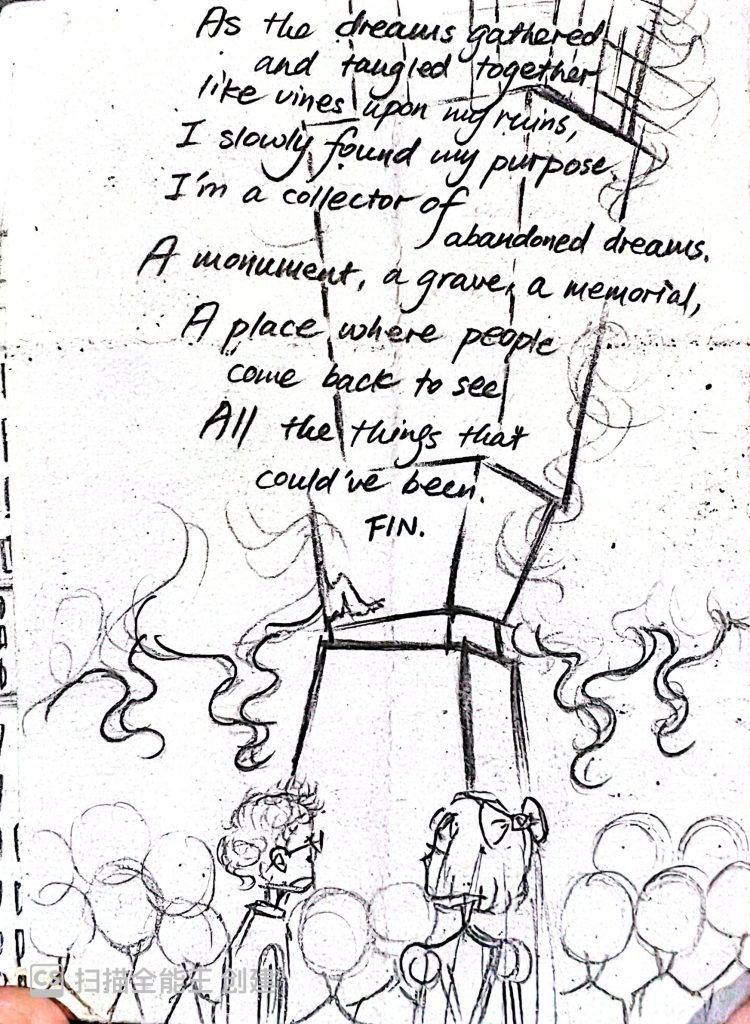 As the dreams gathered
and tangled together
like vines upon my ruins,
I slowly found my purpose.
I'm a collector of
abandoned dreams.
A monument, a grave, a memorial,
A place where people
come back to see
All the things that
could've been.
FIN.
CS 扫描全能王 创建